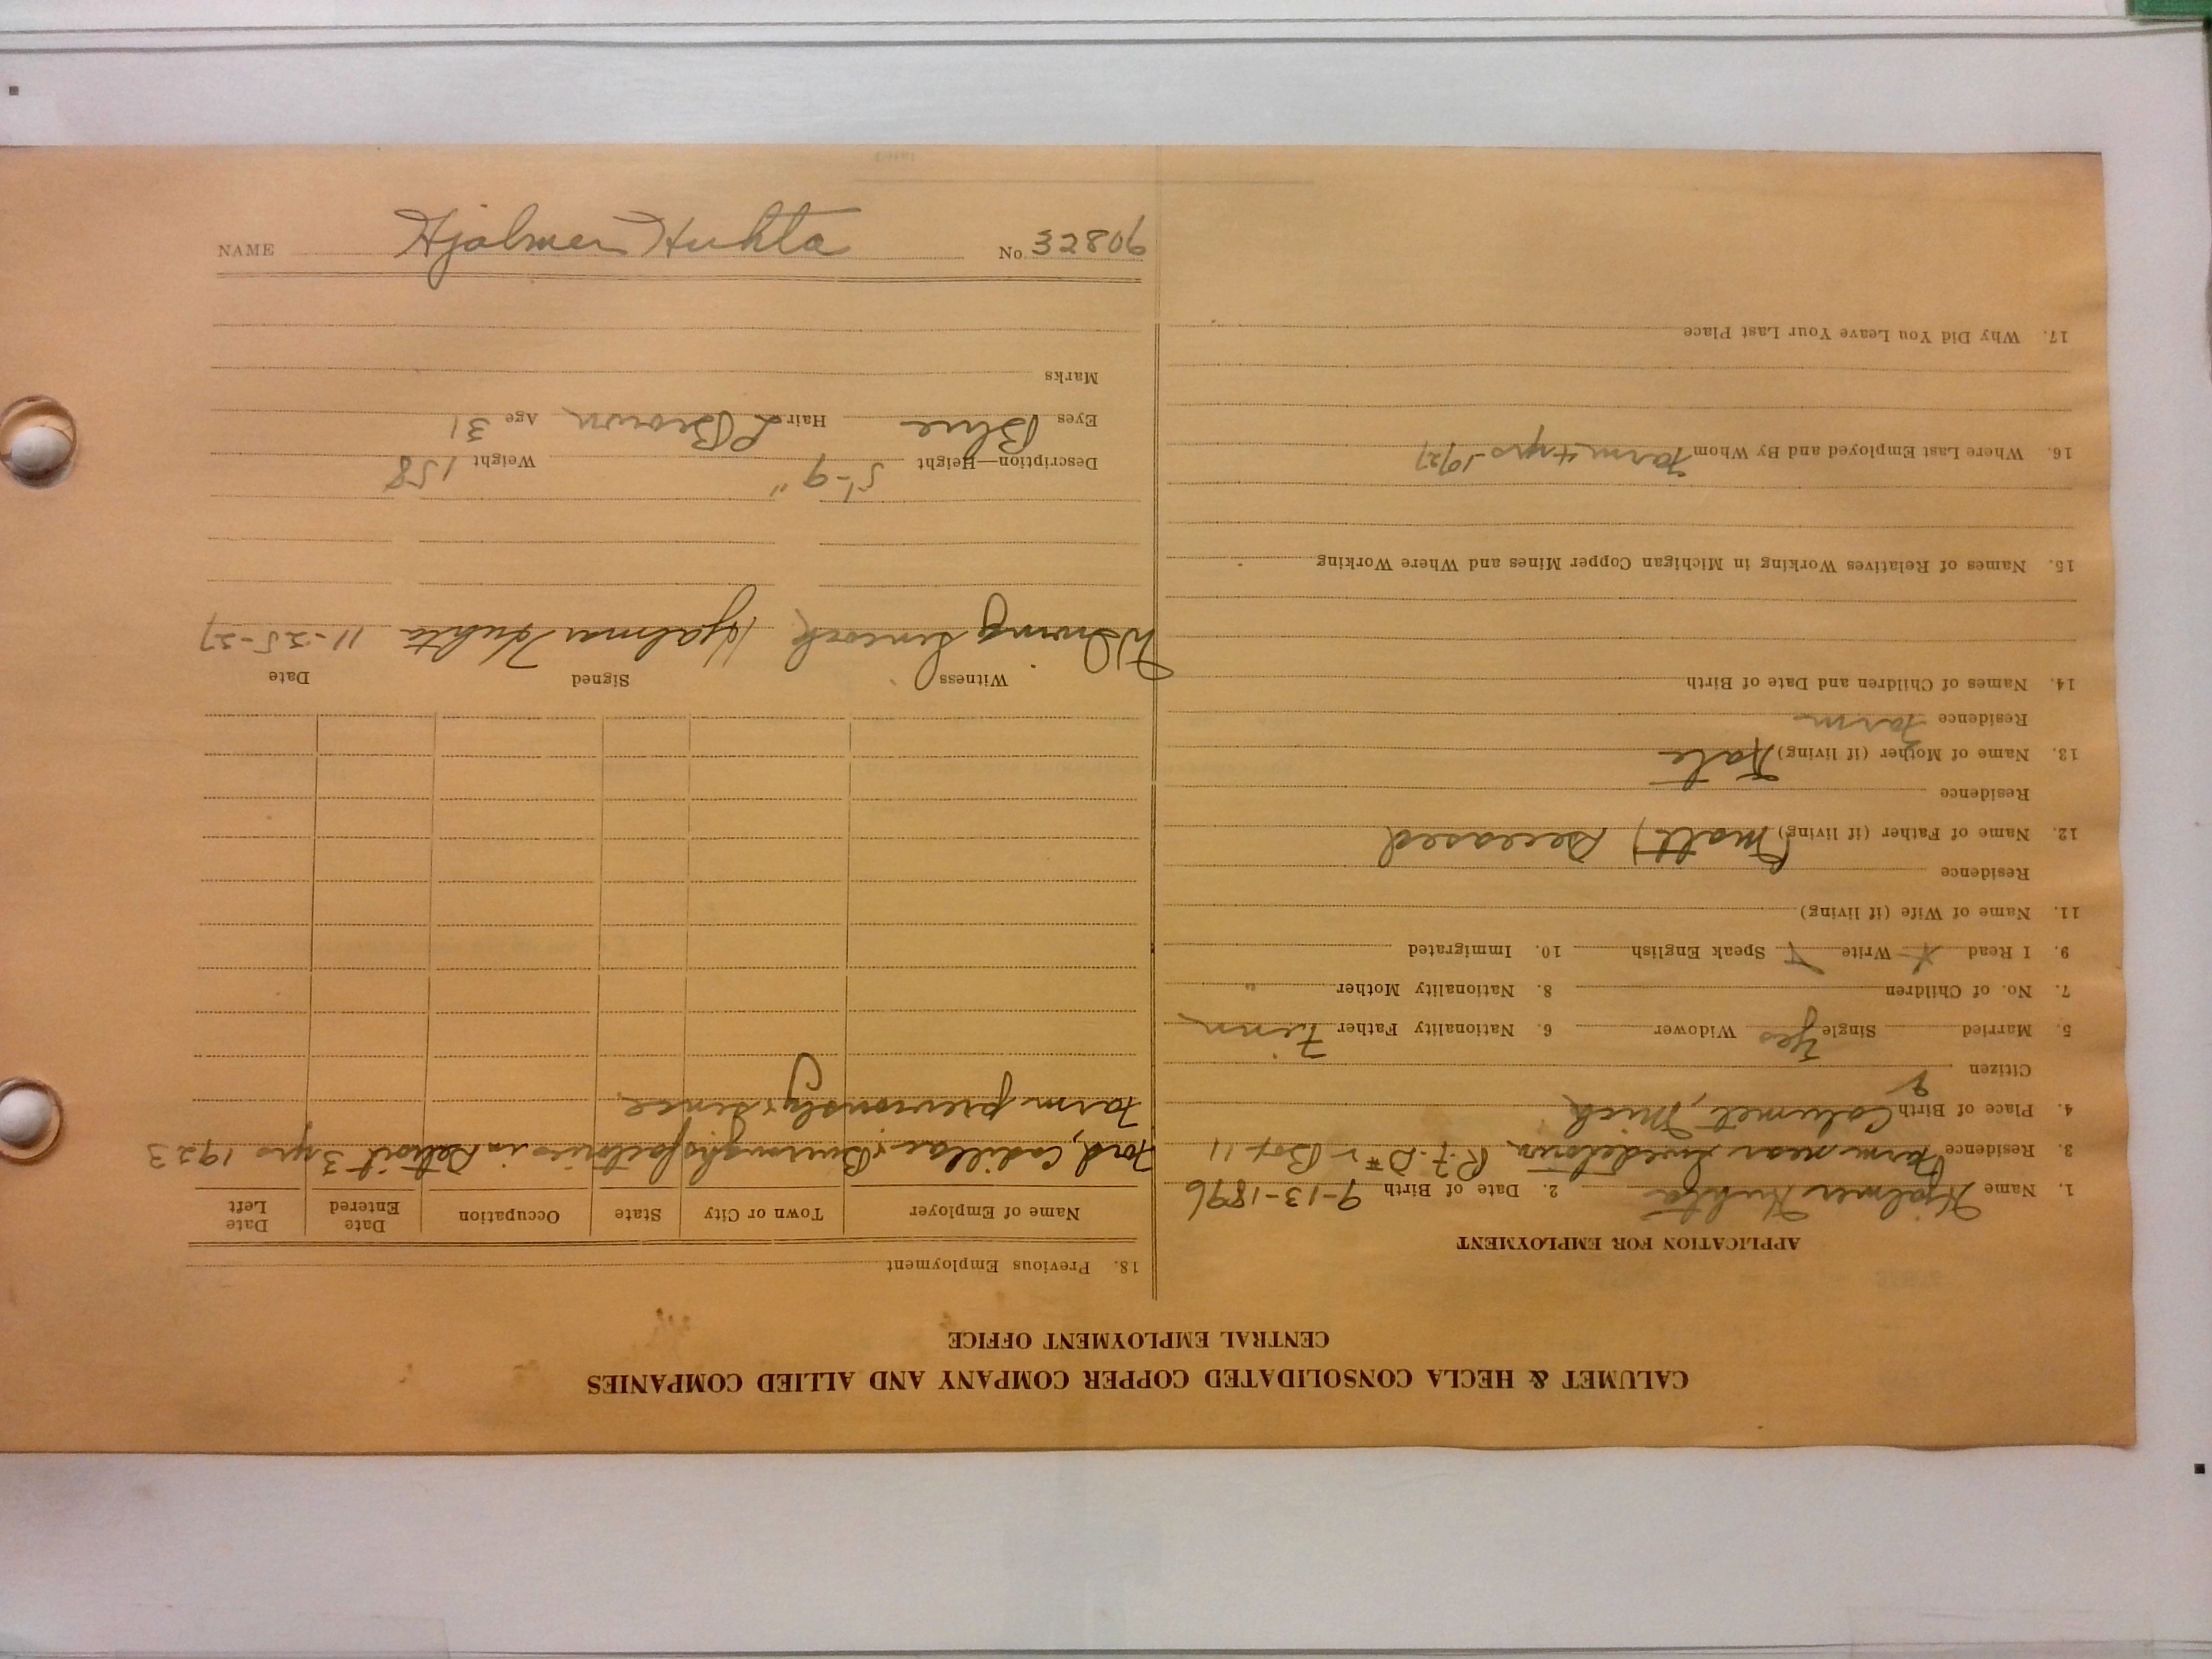 CALUMET & HECLA CONSOLIDATED COPPER COMPANY AND ALLIED COMPANIES
CENTRAL EMPLOYMENT OFFICE
APPLICATION FOR EMPLOYMENT
1. Name Hjalmer Huhta 2. Date of Birth 9-13-1896
3. Residence Farm near Swedetown, R.F.D #1 Box 11
4. Place of Birth Calumet, Mich
Citizen
5. Married Single Yes Widower 6. Nationality Father Finn
7. No. of Children 8. Nationality Mother "
9. I Read X Write X Speak English 10. Immigrated
11. Name of Wife (if living)
Residence
12. Name of Father (if living) (Matt) Deceased
Residence
13. Name of Mother (if living) Kate
Residence Farm
14. Names of Children and Date of Birth
15. Names of Relatives Working in Michigan Copper Mines and Where Working
16. Where Last Employed and By Whom Farm 4 yrs-1927
17. Why Did You Leave Your Last Place
18. Previous Employment
Name of Employer Town or City State Occupation Date Entered Date Left
Ford, Cadillac & Burroughs factories in Detroit 3 yrs 1923
Farm previously & since
Witness Signed Date
Hjalmar Huhta 11-25-27
Description—Height 5'-9" Weight 158
Eyes Blue Hair d Brown Age 31
Marks
NAME Hjalmer Huhta No. 32806